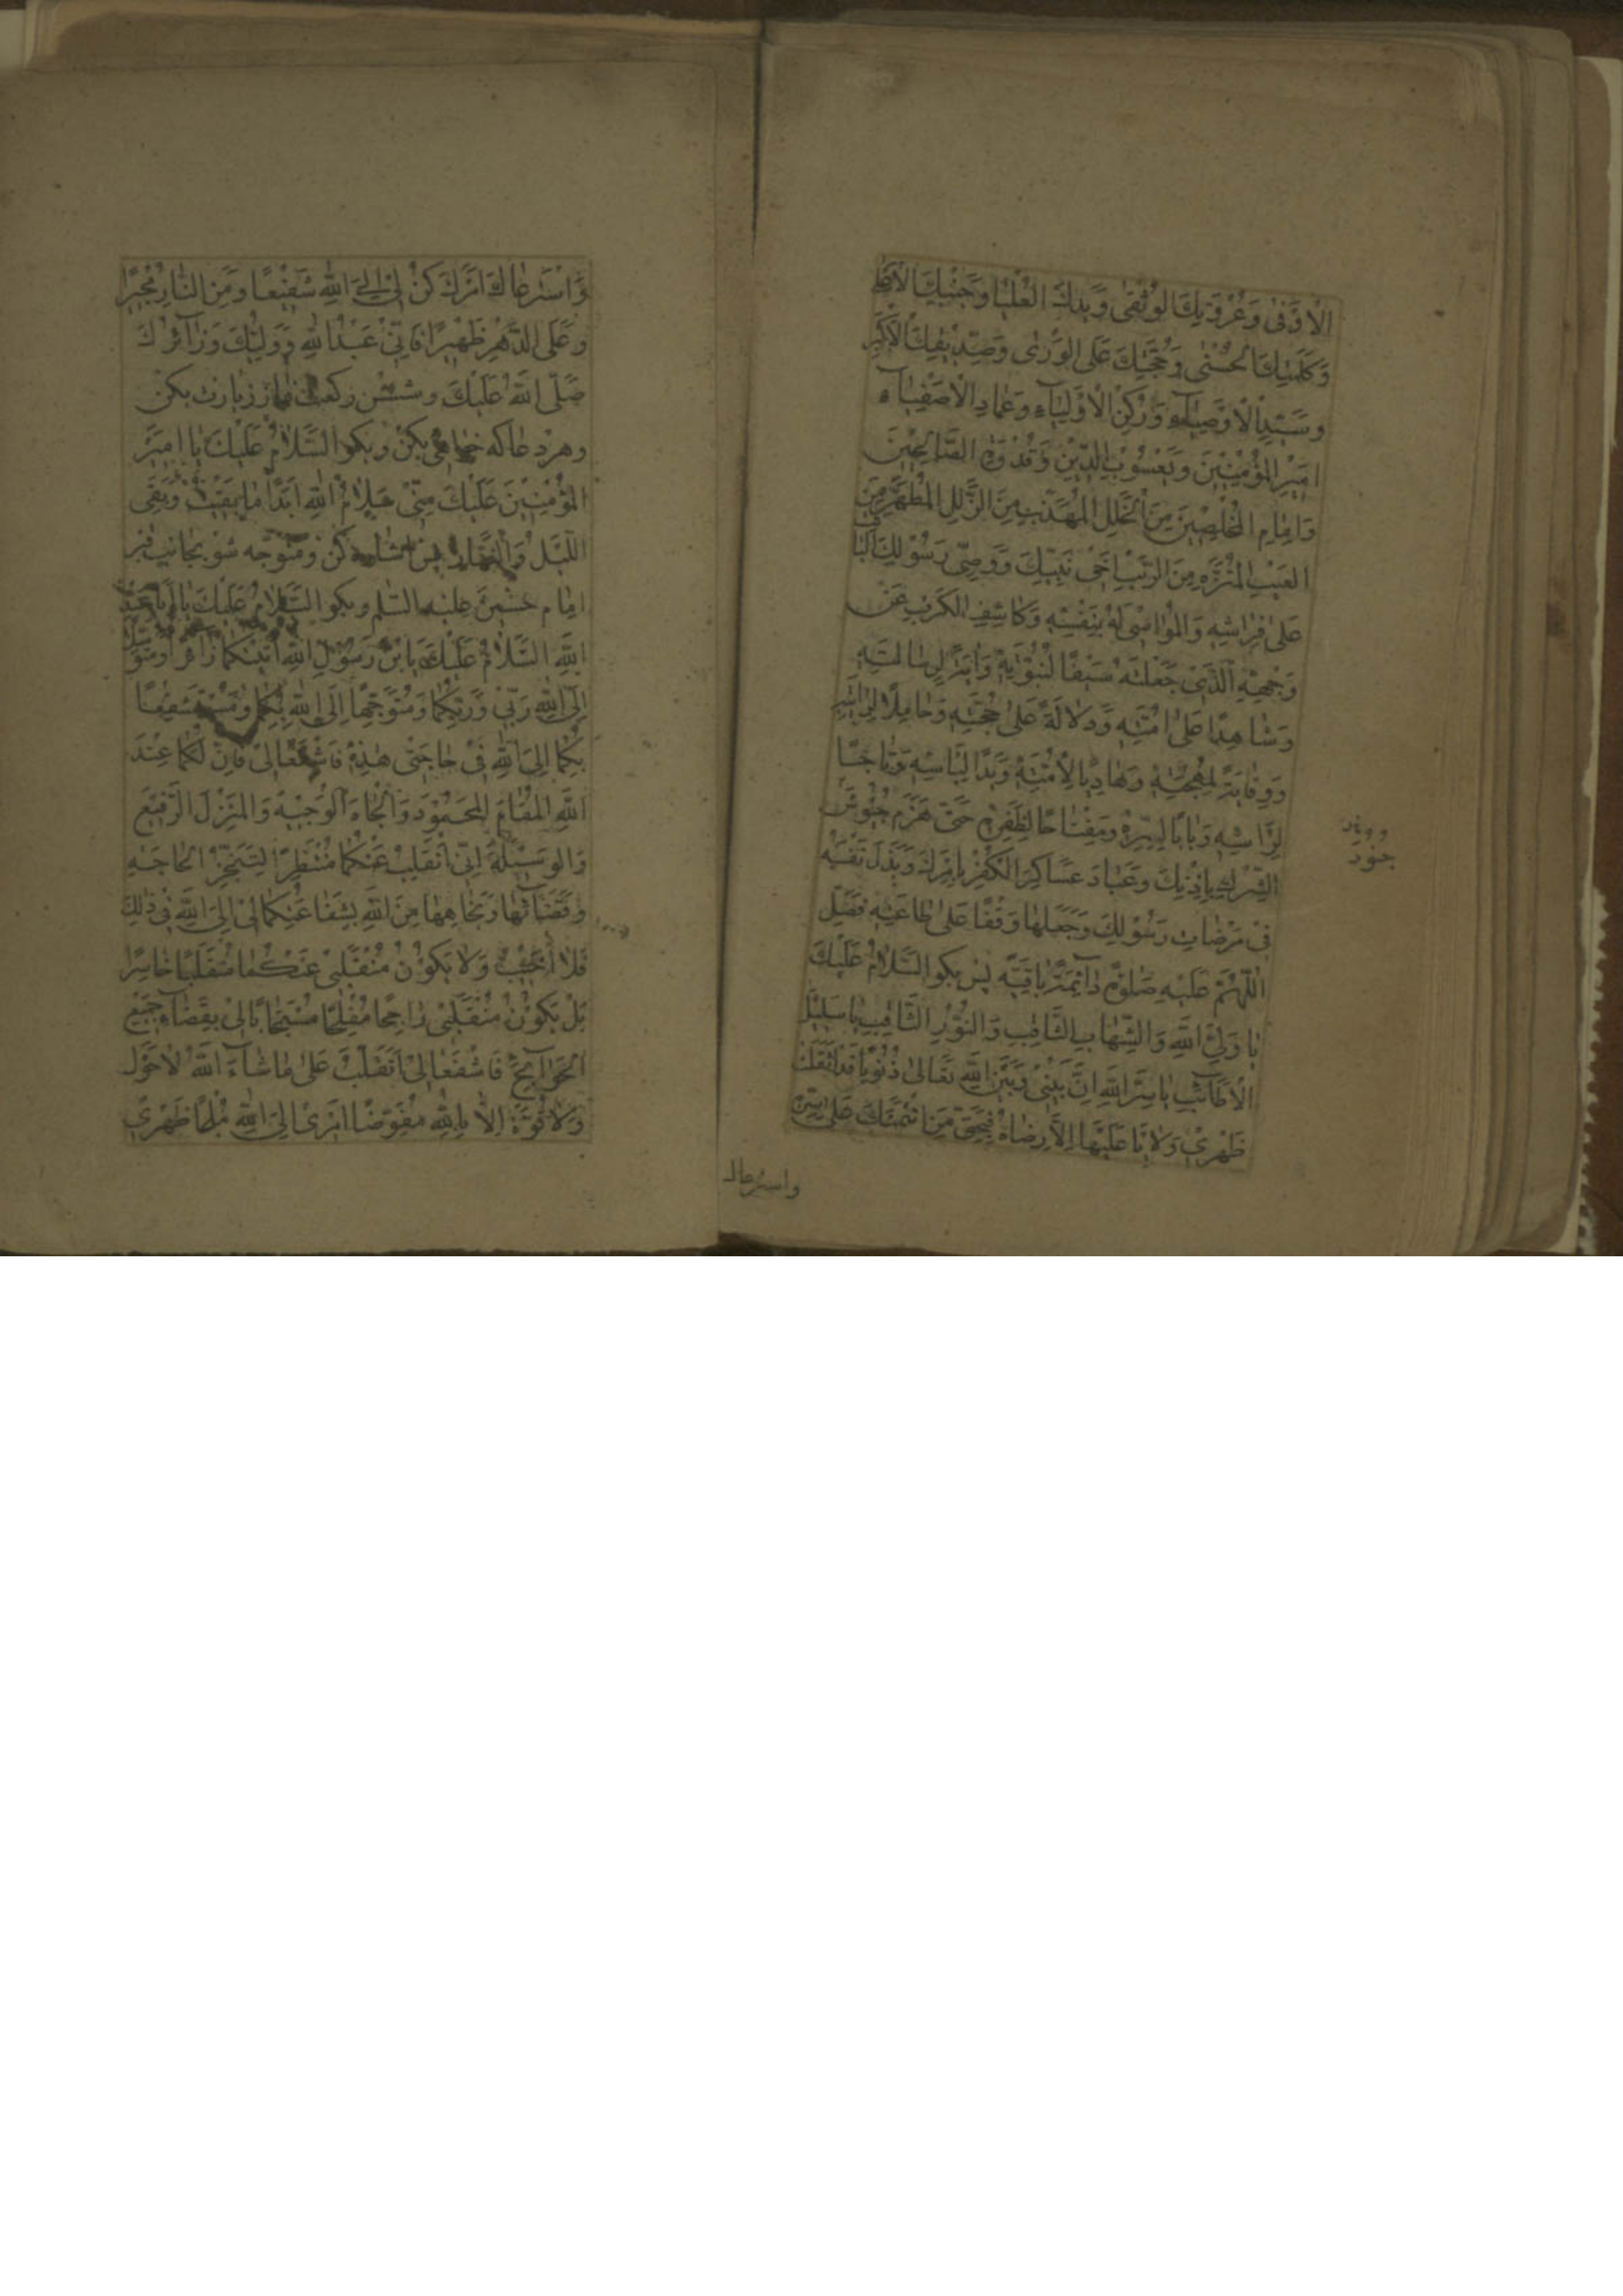 الْاَوْفٰى وَعُرْوَتِكَ الْوُثْقٰى وَيَدِكَ الْعُلْيٰا وَجَنْبِكَ الْاَعْلٰى
وَكَلِمَتِكَ الْحُسْنٰى وَحُجَّتِكَ عَلَى الْوَرٰى وَصِدّيقِكَ الْاَكْبَرِ
وَسَيِّدِ الْاَوْصِيٰآءِ وَرُكْنِ الْاَوْلِيٰآءِ وَعِمٰادِ الْاَصْفِيٰآءِ
اَمِيْرِ الْمُؤْمِنِيْنَ وَيَعْسُوْبِ الدِّيْنِ وَقُدْوَةِ الصّٰالِحِيْنَ
وَاِمٰامِ الْمُخْلِصِيْنَ مِنَ الْخَلَلِ الْمُهَذَّبِ مِنَ الزَّلَلِ الْمُطَهَّرِ مِنَ
الْعَيْبِ الْمُنَزَّهِ مِنَ الرَّيْبِ اَخٰى نَبِيِّكَ وَوَصِىِّ رَسُوْلِكَ الْبٰائِت
عَلٰى فِرٰاشِهِ وَالْمُوٰاسٰى لَهُ بِنَفْسِهِ وَكٰاشِفِ الْكَرْبِ عَنْ
وَجْهِهِ الَّذٰى جَعَلْتَهُ سَيْفًا لِنُبُوَّتِهِ وَاٰيَةً لِرِسٰالَتِهِ
وَشٰاهِدًا عَلٰى اُمَّتِهِ وَدَلٰالَةً عَلٰى حُجَّتِهِ وَحٰامِلًا لِرٰايَتِهِ
وَوِقٰايَةً لِمُهْجَتِهِ وَهٰادِيًا لِاُمَّتِهِ وَيَدًا لِبَاْسِهِ وَتٰاجًا
لِرَاْسِهِ وَبٰابًا لِسِرِّهِ وَمِفْتٰاحًا لِظَفَرِهِ حَتّٰى هَزَمَ جُيُوْشَ
الشِّرْكِ بِاِذْنِكَ وَاَبٰادَ عَسٰاكِرَ الْكُفْرِ بِاَمْرِكَ وَبَذَلَ نَفْسَهُ
فِىْ مَرْضٰاتِ رَسُوْلِكَ وَجَعَلَهٰا وَقْفًا عَلٰى طٰاعَتِهِ فَصَلِّ
اللّٰهُمَّ عَلَيْهِ صَلٰوةً دٰآئِمَةً بٰاقِيَةً پس بكو السَّلٰامُ عَلَيْكَ
يٰا وَلِىَّ اللّٰهِ وَالشِّهٰابِ الثّٰاقِبِ وَالنُّوْرِ الثّٰاقِبِ يٰا سَلِيْلَ
الْاَطٰآئِبِ يٰا سِرَّ اللّٰهِ اِنَّ بَيْنِىْ وَبَيْنَ اللّٰهِ تَعٰالٰى ذُنُوْبًا قَدْ اَثْقَلَتْ
ظَهْرِىْ وَلٰا يَاْتِى عَلَيْهٰا اِلّٰا رِضٰاهُ فَبِحَقِّ مَنِ ائْتَمَنَكَ عَلٰى سِرِّهِ
واسترعاك
وَاسْتَرْعٰاكَ اَمْرَكَ كُنْ لِىْ اِلَى اللّٰهِ شَفِيْعًا وَمِنَ النّٰارِ مُجِيْرًا
وَعَلَى الدَّهْرِ ظَهِيْرًا فَاِنِّىْ عَبْدُ اللّٰهِ وَوَلِيُّكَ وَزٰآئِرُكَ
صَلَّى اللّٰهُ عَلَيْكَ وشش ركعت نماز زيارت بكن
وهر دعا كه خواهى بكن وبكو السَّلٰامُ عَلَيْكَ يٰا اَمِيْرَ
الْمُؤْمِنِيْنَ عَلَيْكَ مِنِّىْ سَلٰامُ اللّٰهِ اَبَدًا مٰا بَقِيْتُ وَبَقِىَ
اللَّيْلُ وَالنَّهٰارُ پس اشاره كن ومتوجّه شو بجانب قبر
امام حسين عليه السلم وبكو السَّلٰامُ عَلَيْكَ يٰا اَبٰا عَبْدِ
اللّٰهِ السَّلٰامُ عَلَيْكَ يَابْنَ رَسُوْلِ اللّٰهِ اَتَيْتُكُمٰا زٰآئِرًا وَمُتَوَسِّلًا
اِلَى اللّٰهِ رَبِّىْ وَرَبِّكُمٰا وَمُتَوَجِّهًا اِلَى اللّٰهِ بِكُمٰا وَمُسْتَشْفِعًا
بِكُمٰا اِلَى اللّٰهِ فِىْ حٰاجَتِىْ هٰذِهِ فَاشْفَعٰا لِىْ فَاِنَّ لَكُمٰا عِنْدَ
اللّٰهِ الْمَقٰامَ الْمَحْمُوْدَ وَالْجٰاهَ الْوَجِيْهَ وَالْمَنْزِلَ الرَّفِيْعَ
وَالْوَسِيْلَةَ اِنِّىْ اَنْقَلِبُ عَنْكُمٰا مُنْتَظِرًا لِتَنَجُّزِ الْحٰاجَةِ
وَقَضٰآئِهٰا وَنَجٰاحِهٰا مِنَ اللّٰهِ بِشَفٰاعَتِكُمٰا لِىْ اِلَى اللّٰهِ فِىْ ذٰلِكَ
فَلٰا اَخِيْبُ وَلٰا يَكُوْنُ مُنْقَلَبِىْ عَنْكُمٰا مُنْقَلَبًا خٰاسِرًا
بَلْ يَكُوْنُ مُنْقَلَبِىْ رٰاجِحًا مُفْلِحًا مُسْتَجٰابًا لِىْ بِقَضٰآءِ جَمِيْعِ
الْحَوٰآئِجِ فَاشْفَعٰا لِىْ اَنْقَلِبُ عَلٰى مٰا شٰآءَ اللّٰهُ لٰا حَوْلَ
وَلٰا قُوَّةَ اِلّٰا بِاللّٰهِ مُفَوِّضًا اَمْرِىْ اِلَى اللّٰهِ مُلْجًا ظَهْرِىْ